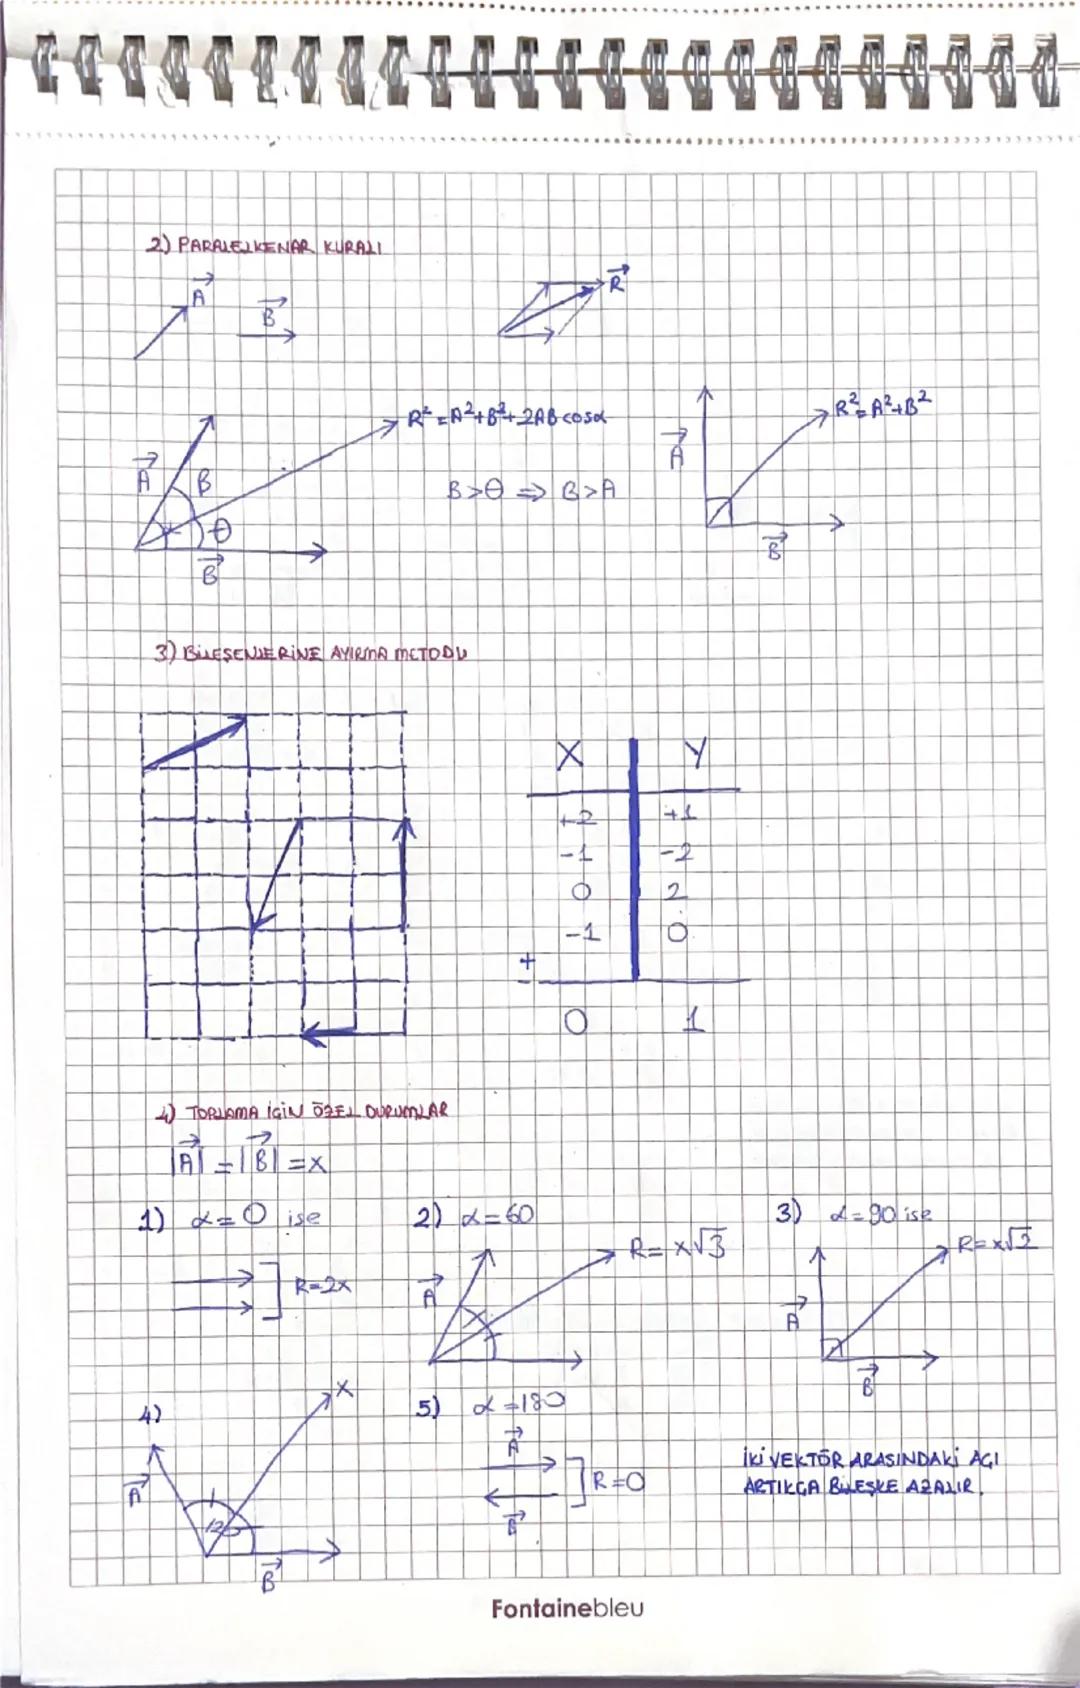 2) PARALELKENAR KURALI
A B R
R²=A²+B²+2ABcosα
R²=A²+B²
A β
β>θ ⇒ B>A
A
θ
B
B
3) BİLEŞENLERİNE AYIRMA METODU
X Y
+2 +1
-1 -2
0 2
-1 0
+
0 1
4) TOPLAMA İÇİN ÖZEL DURUMLAR
|A| = |B| = x
1) α=0 ise
R=2x
2) α=60
R=x√3
A
3) α=90 ise
R=x√2
A
B
4)
x
A
120
B
5) α=180
A
R=0
B
İKİ VEKTÖR ARASINDAKİ AÇI
ARTIKÇA BİLEŞKE AZALIR.
Fontainebleu